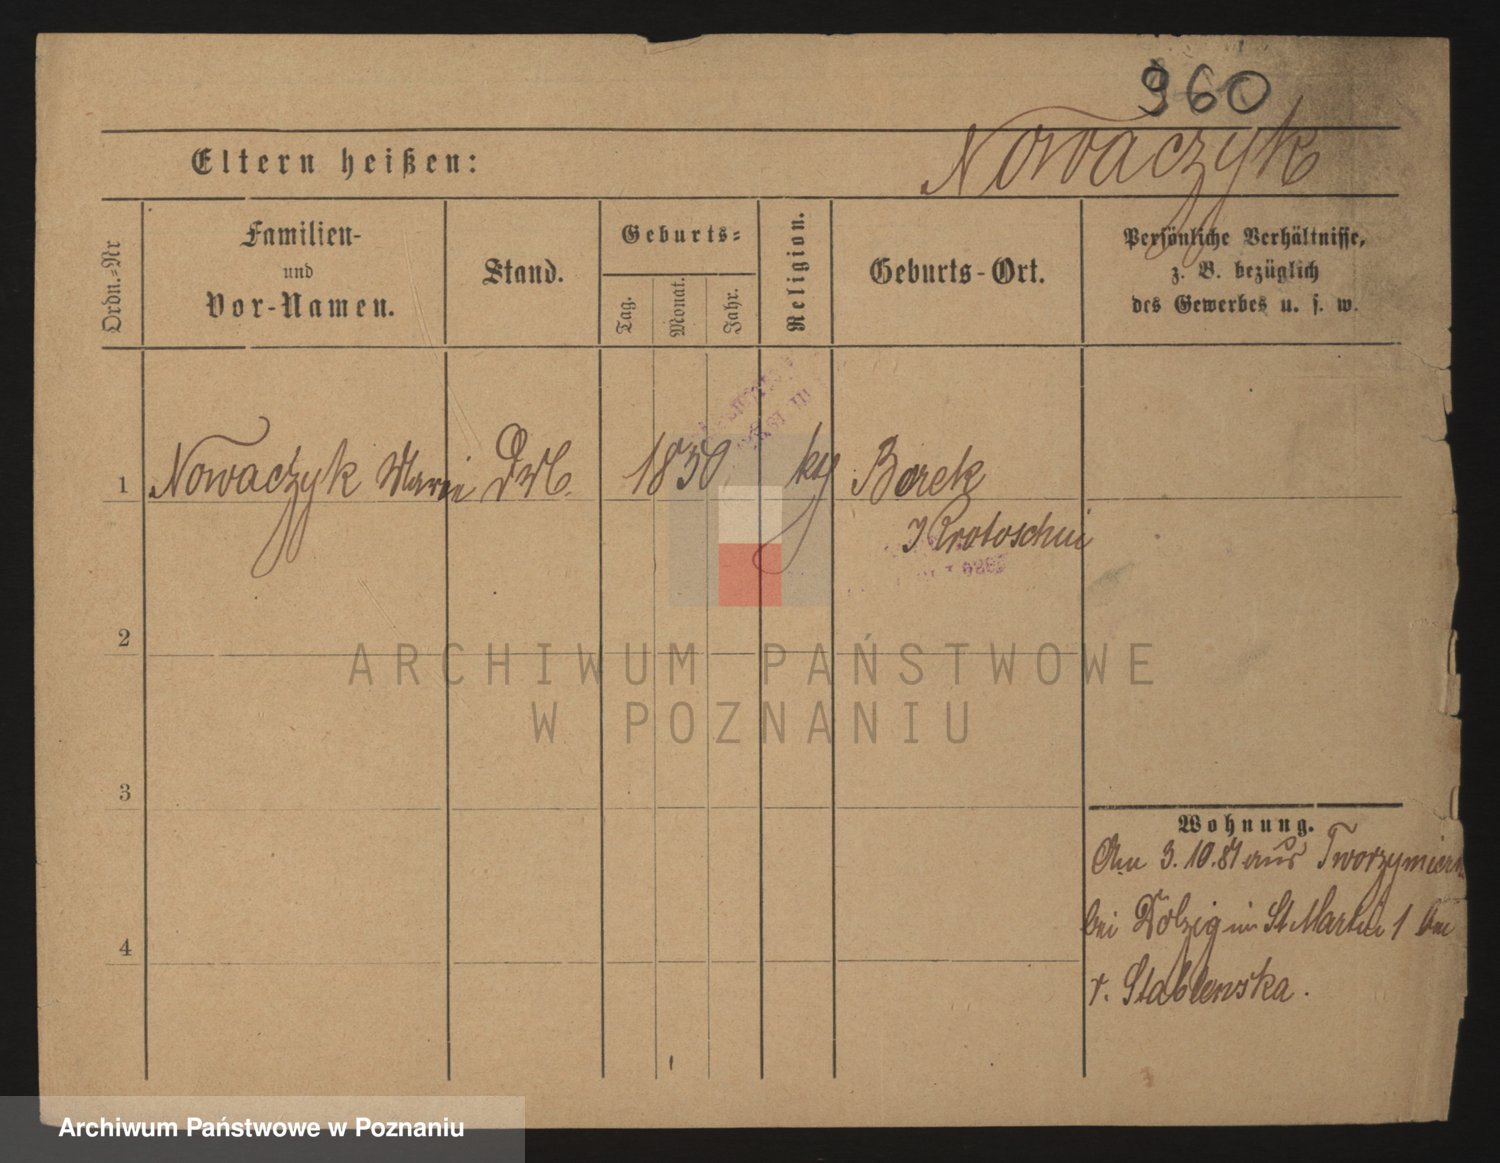 960
Eltern heißen:
Nowaczyk
Ordn.=Nr
Familien-
und
Vor-Namen.
Stand.
Geburts=
Tag.
Monat.
Jahr.
Religion.
Geburts-Ort.
Persönliche Verhältnisse,
z. B. bezüglich
des Gewerbes u. s. w.
1
Nowaczyk Marie
1850
Borek
Krotoschin
2
ARCHIWUM PAŃSTWOWE
W POZNANIU
3
Wohnung.
3.10.81 aus
bei Dolzig St Martin 1
Stablewska.
4
Archiwum Państwowe w Poznaniu